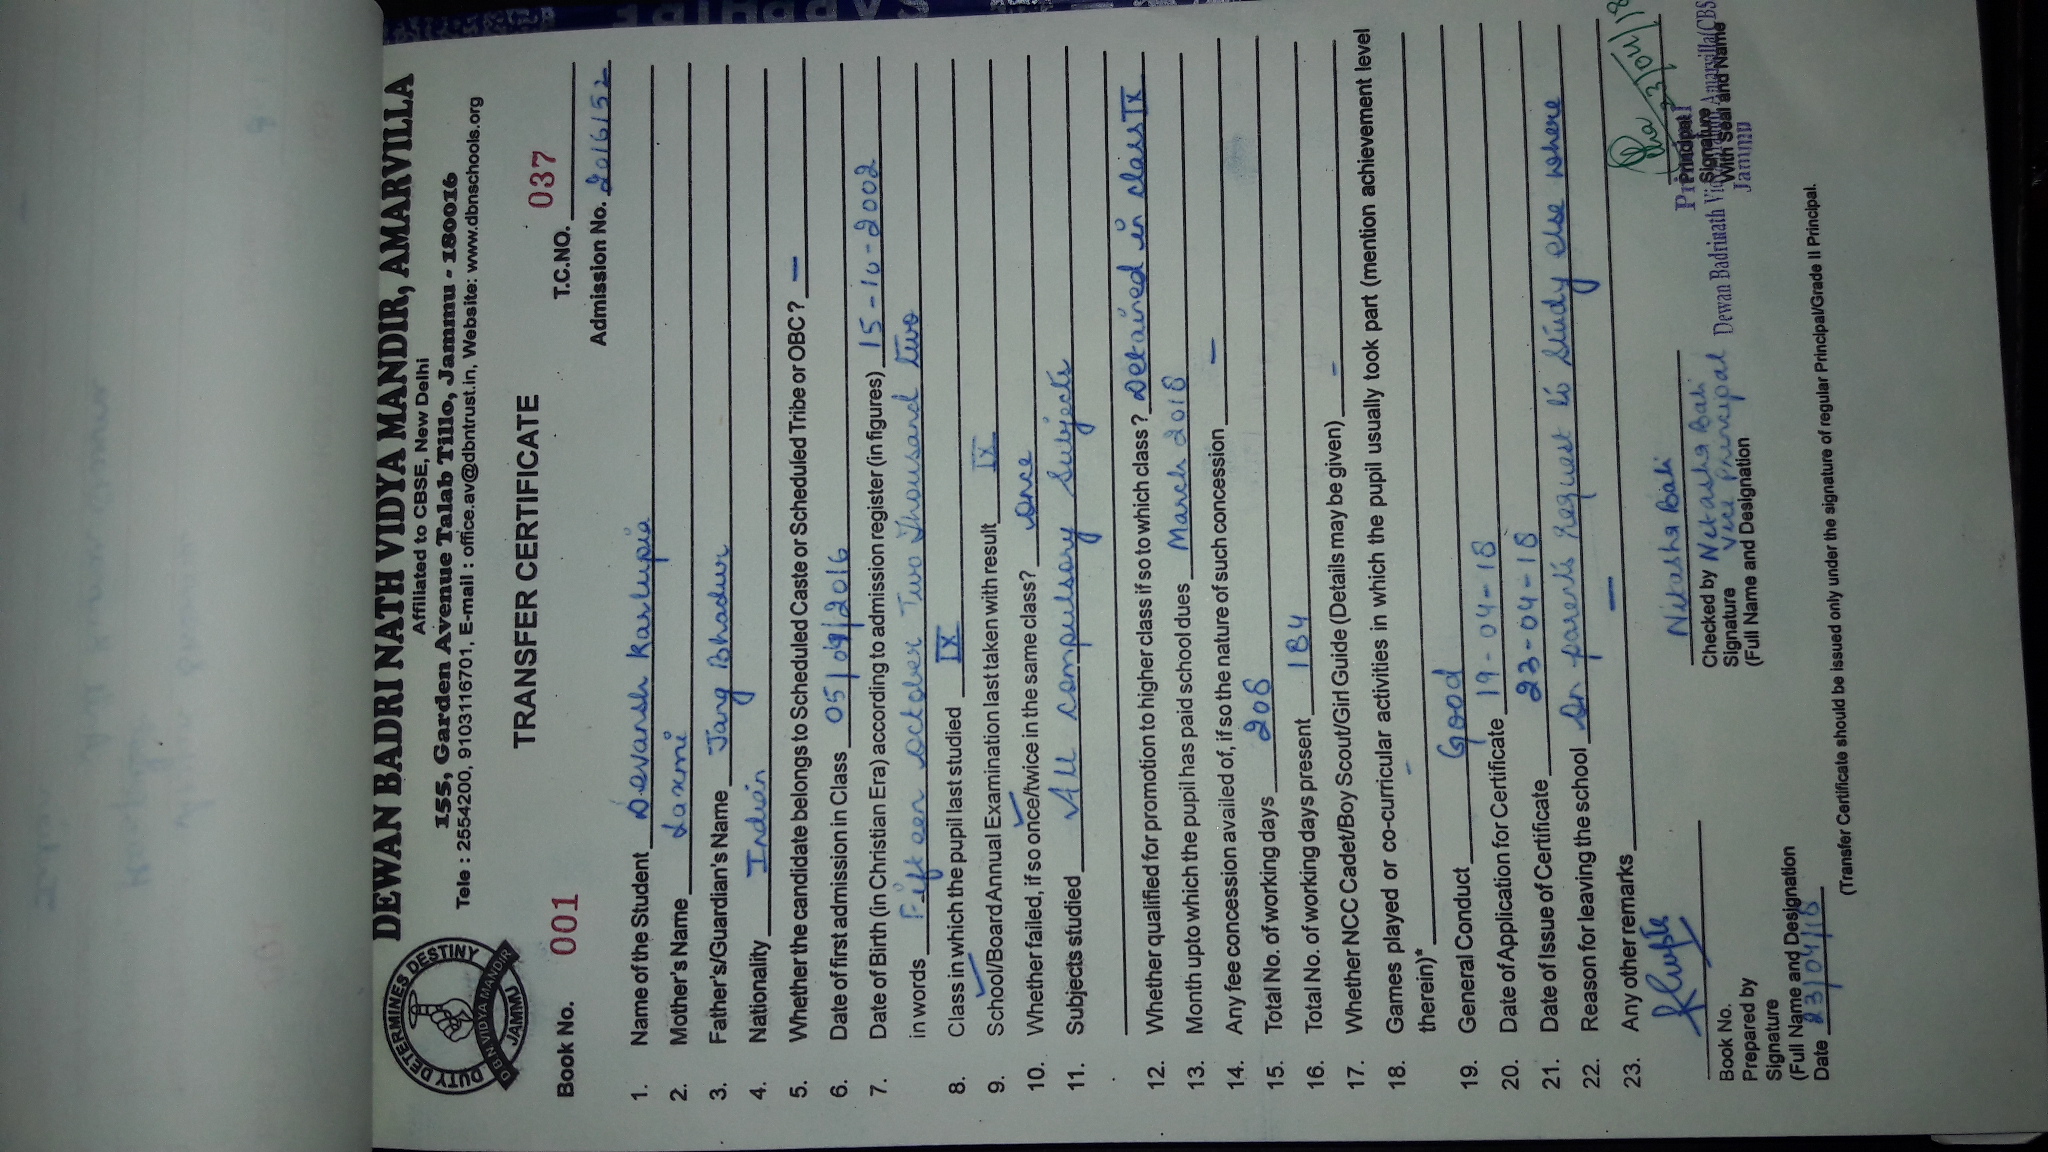 DEWAN BADRI NATH VIDYA MANDIR, AMARVILLA
Affiliated to CBSE, New Delhi
155, Garden Avenue Talab Tillo, Jammu - 180016
Tele : 2554200, 9103116701, E-mail : office.av@dbntrust.in, Website: www.dbnschools.org
DUTY DETERMINES DESTINY
D B N VIDYA MANDIR
JAMMU
TRANSFER CERTIFICATE
Book No. 001 T.C.NO. 037
Admission No. 2016152
1. Name of the Student Devansh Karlupia
2. Mother's Name Laxmi
3. Father's/Guardian's Name Jang Bhadur
4. Nationality Indian
5. Whether the candidate belongs to Scheduled Caste or Scheduled Tribe or OBC? —
6. Date of first admission in Class 05/09/2016
7. Date of Birth (in Christian Era) according to admission register (in figures) 15-10-2002
in words Fifteen october Two Thousand two
8. Class in which the pupil last studied IX
9. School/Board Annual Examination last taken with result IX
10. Whether failed, if so once/twice in the same class? once
11. Subjects studied All compulsory Subjects
12. Whether qualified for promotion to higher class if so to which class? Detained in class IX
13. Month upto which the pupil has paid school dues March 2018
14. Any fee concession availed of, if so the nature of such concession —
15. Total No. of working days 208
16. Total No. of working days present 184
17. Whether NCC Cadet/Boy Scout/Girl Guide (Details may be given) -
18. Games played or co-curricular activities in which the pupil usually took part (mention achievement level
therein)* -
19. General Conduct Good
20. Date of Application for Certificate 19-04-18
21. Date of Issue of Certificate 23-04-18
22. Reason for leaving the school On parents Request to Study else where
23. Any other remarks —
Book No.
Prepared by
Signature
(Full Name and Designation
Date 23/04/18
Netasha Bali
Checked by Netasha Bali
Signature Vice Principal
(Full Name and Designation
23/04/18
Principal
Signature
With Seal and Name
Principal
Dewan Badrinath Vidya Mandir Amarvilla(CBS
Jammu
(Transfer Certificate should be issued only under the signature of regular Principal/Grade II Principal.